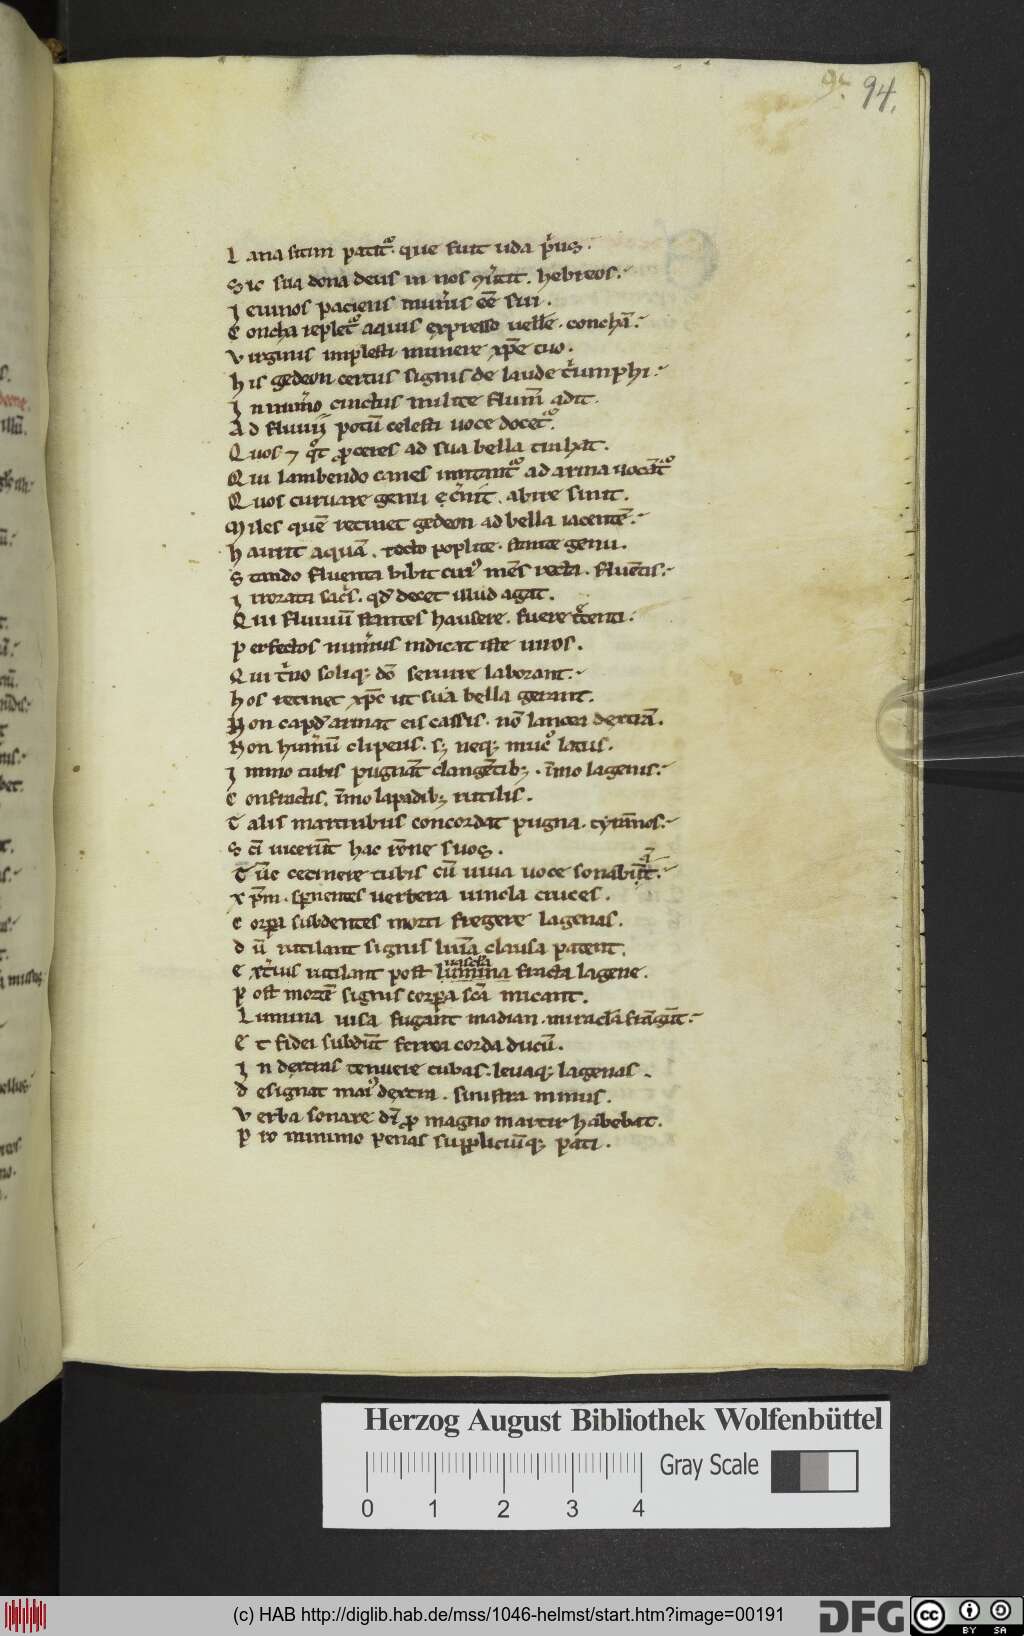 94.
L ana sitim patit᷒. que fuit uda p̄us.
S ic sua dona deus in nos hebreos.
I eiunos paciens muñis eē sui.
C oncha replet᷒ aquis expresso uelle᷒. conchā.
V irginis implesti munere xp̄e tuo.
h is gedeon certus signis de laude t̾umphi.
I n nim̾o cinctus milite flum̄ adit.
A d fluuij potū celesti uoce docet᷒.
Q uos ⁊ q̾t ꝓceres ad sua bella t̾hat.
Q ui lambendo canes imitant᷒ ad arma uocāt᷒
Q uos curuare genu c̾nit. abire sinit.
M iles quē retinet gedeon ad bella iacentē.
h aurit aquā. recto poplite. stante genu.
S tando fluenta bibit cui᷒ mēs recta. fluētis.
I rrorata sac̾s. qd̄ decet illud agat.
Q ui fluuiū stantes hausere. fuere t̾centi.
P erfectos num̾us indicat iste uiros.
Q ui t̾no soliqꝫ dō seruire laborant.
h os retinet xp̄c ut sua bella gerant.
N on cap᷒ armat eis cassis. nō lancea dextrā.
N on hum̾ū clipeus. sꝫ neqꝫ muc᷒ latus.
I mmo tubis pugnāt clangētibꝫ. īmo lagenis.
C onfractis. īmo lāpadibꝫ rutilis.
T alis martiribus concordat pugna. tyrānos.
S cī uicerūt hac rōne suos.
T ūc cecinere tubis cū uiua uoce sonabāt.
x p̄m. sp̄nentes uerbera uincla cruces.
C orꝑa subdentes morti fregere lagenas.
D ū rutilant signis lumīa clausa patent.
E xt̾ius rutilant post lumina uascła fracta lagene.
P ost mortē signis corꝑa scā micant.
L umina uisa fugant madian. miracła frāgūt.
E t fidei subdūt ferrea corda ducū.
I n dextris tenuere tubas. leuaqꝫ lagenas.
D esignat mai᷒ dextra. sinistra minus.
V erba sonare dī ꝓ magno martir habebat.
P ro minimo penas suppliciūqꝫ pati.
Herzog August Bibliothek Wolfenbüttel
Gray Scale
0 1 2 3 4
(c) HAB http://diglib.hab.de/mss/1046-helmst/start.htm?image=00191
DFG
cc BY SA